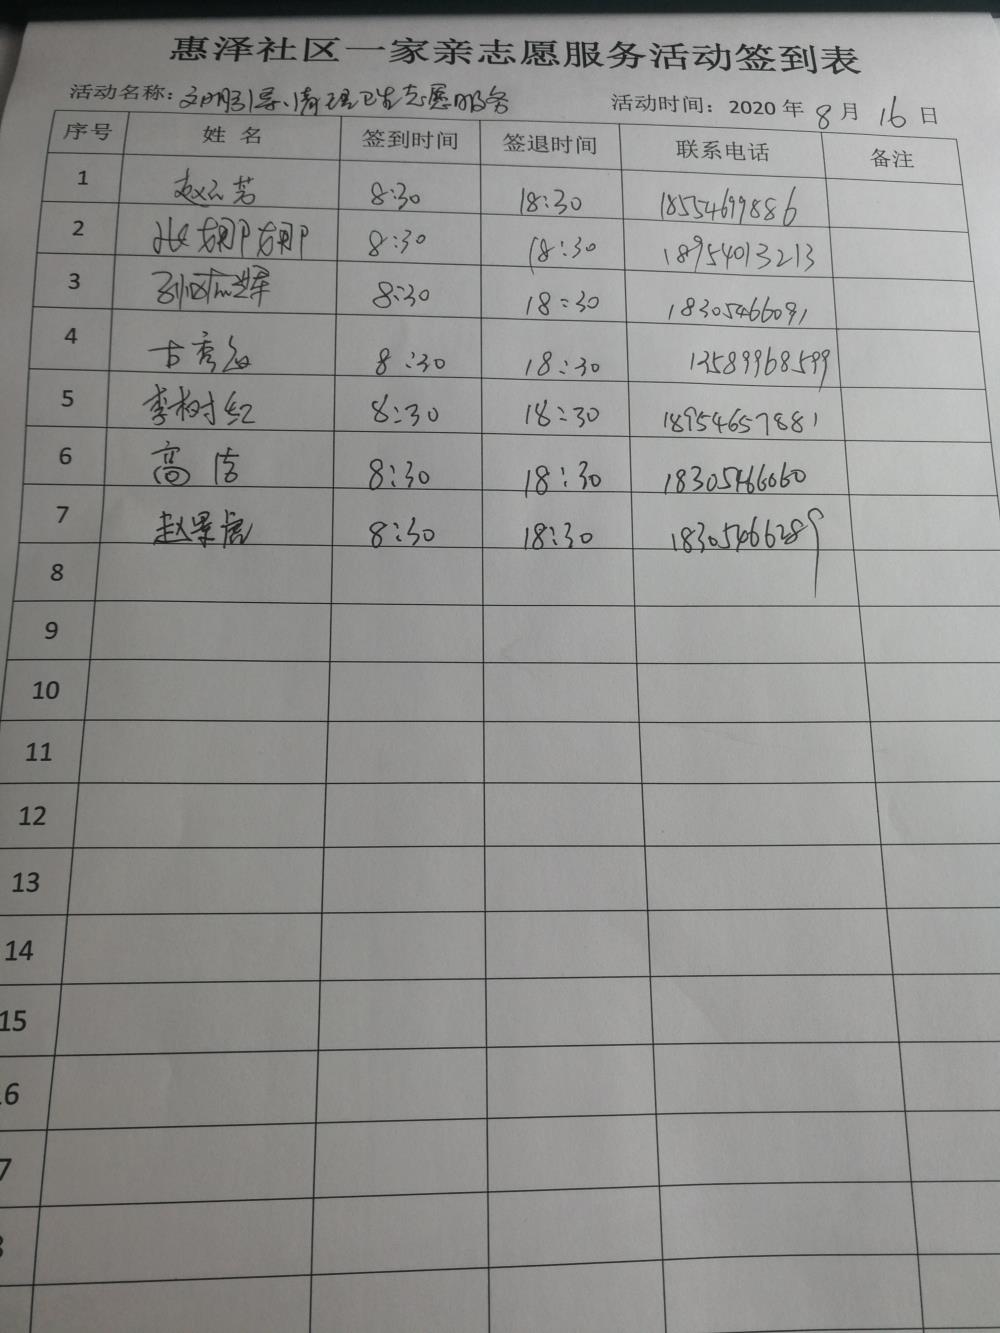 惠泽社区一家亲志愿服务活动签到表
活动名称：文明引导、清理卫生志愿服务 活动时间：2020年8月16日
序号 姓名 签到时间 签退时间 联系电话 备注
1 8:30 18:30 18554699886
2 8:30 18:30 18954013213
3 8:30 18:30 18305466091
4 8:30 18:30 13589968599
5 李树红 8:30 18:30 18954657881
6 高洁 8:30 18:30 18305466060
7 赵景虎 8:30 18:30 18305466289
8
9
10
11
12
13
14
15
6
7